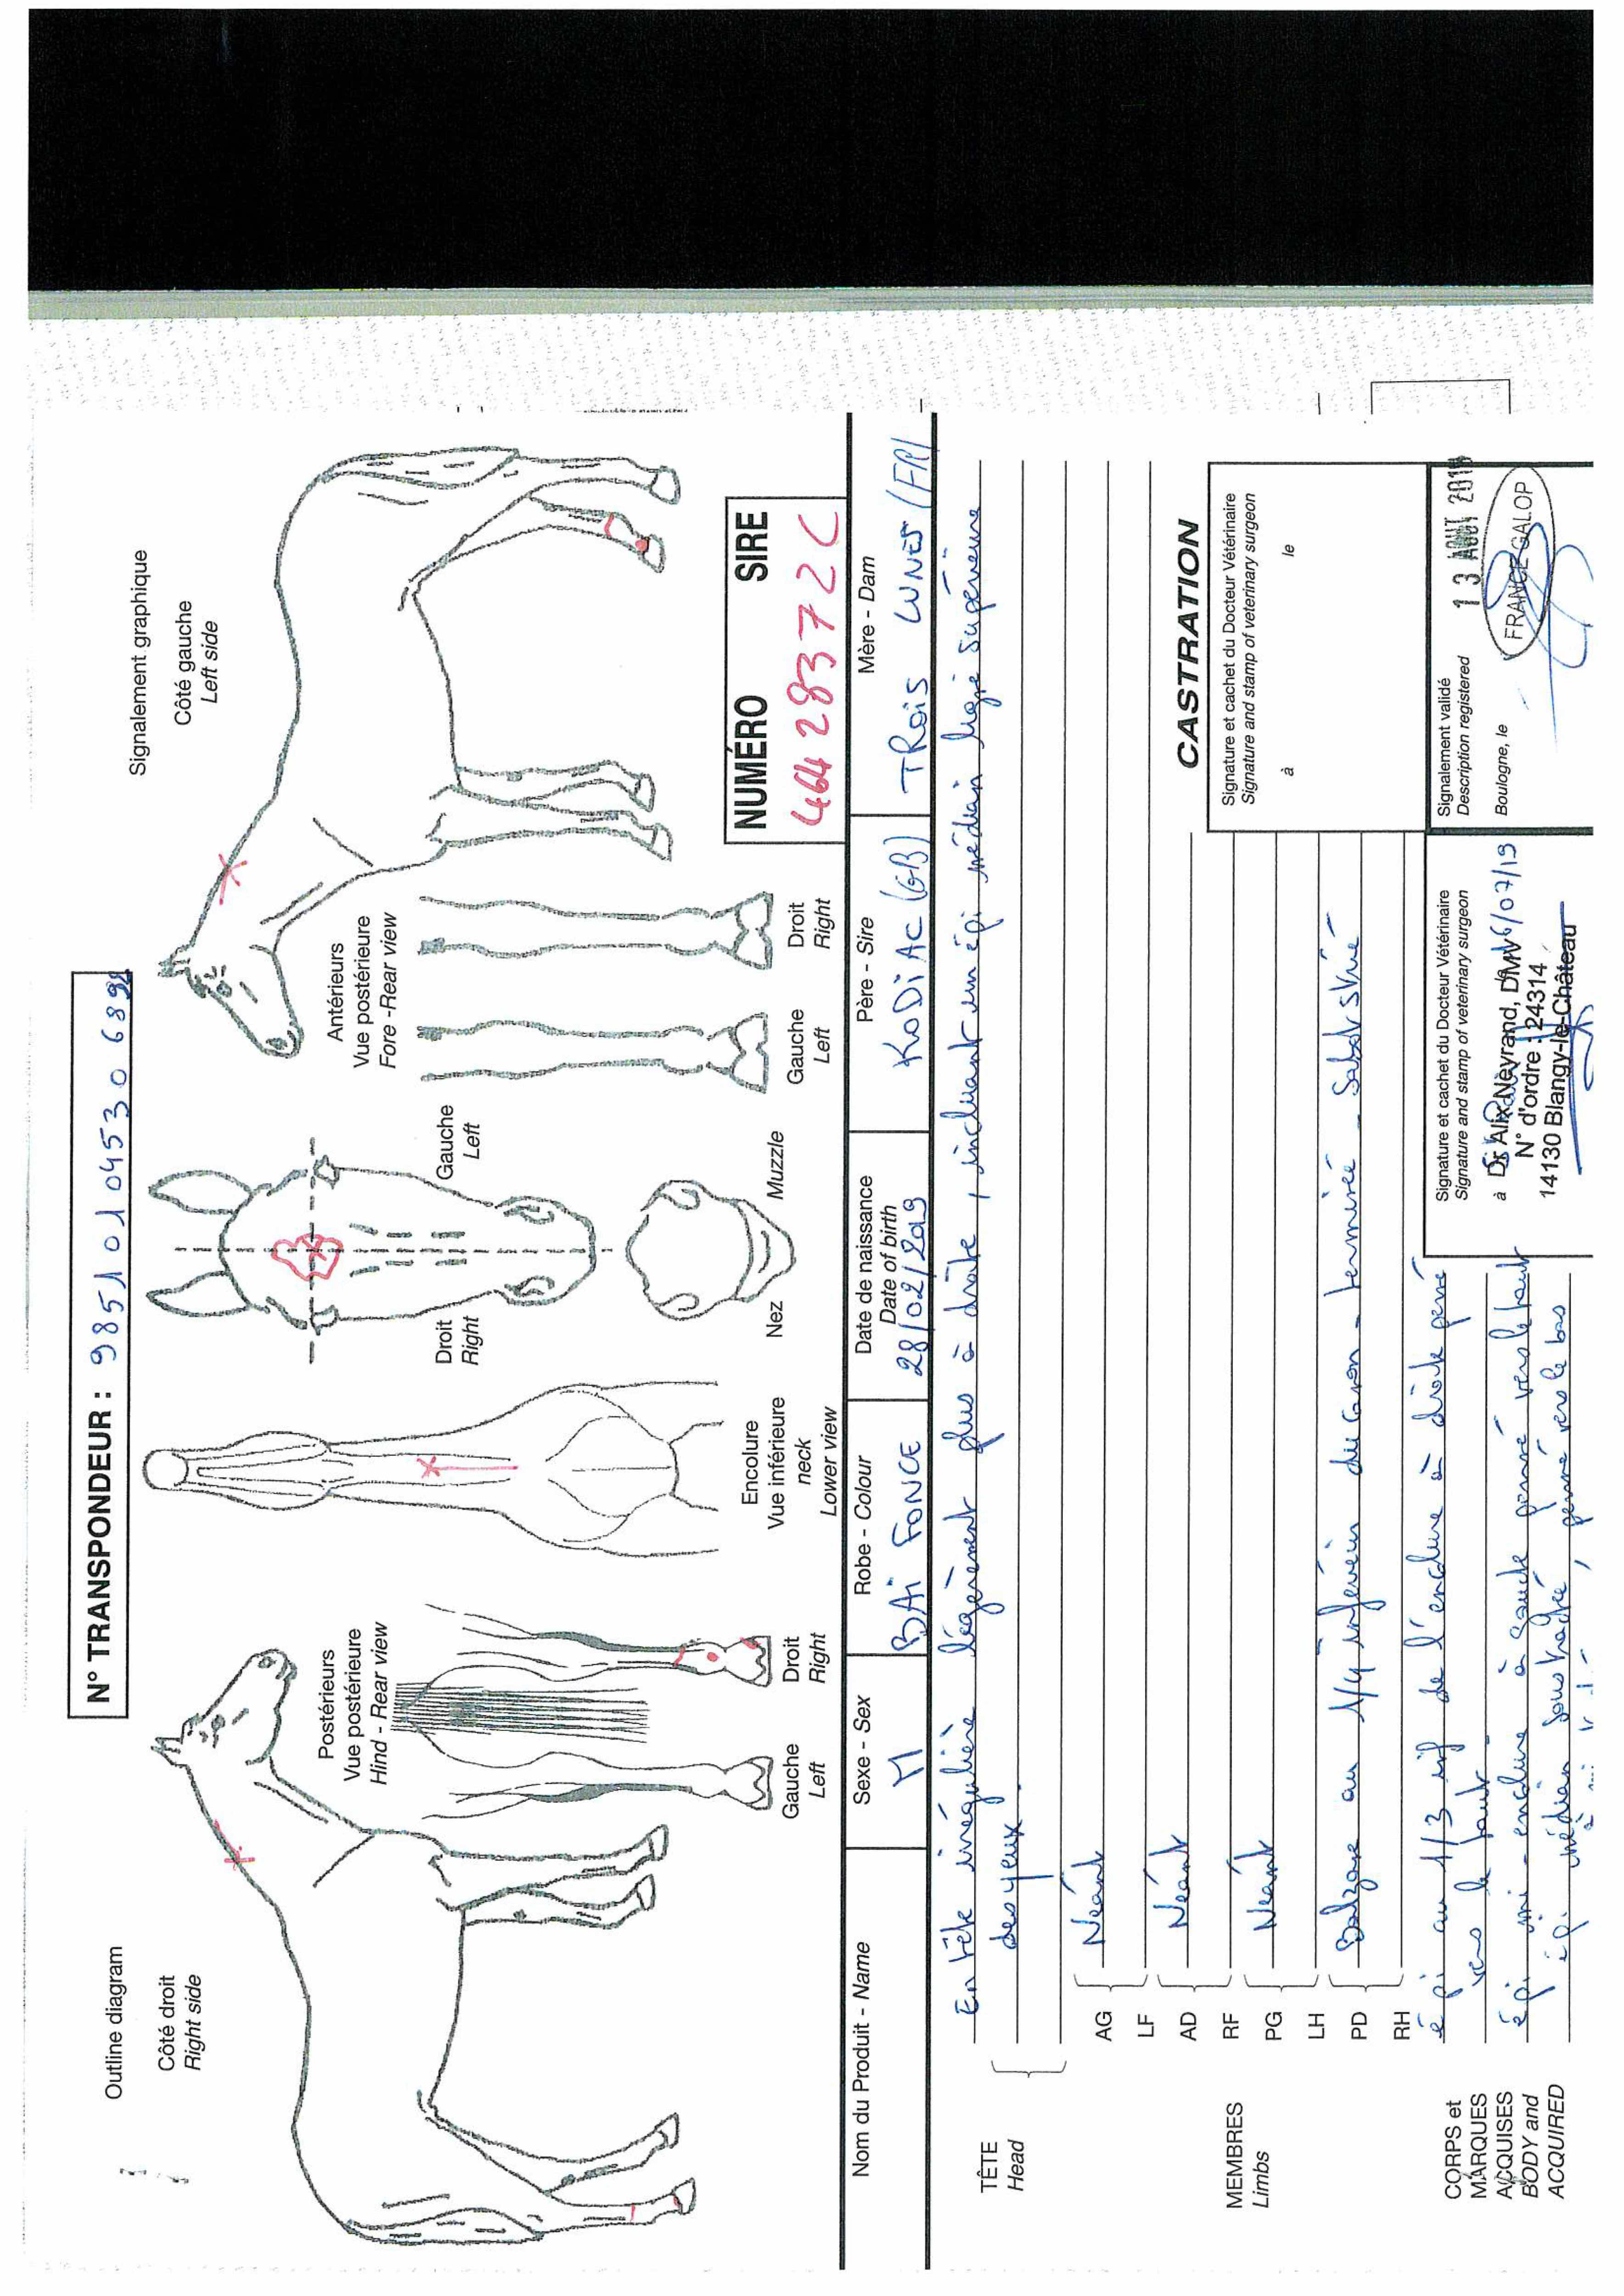 N° TRANSPONDEUR : 985101045306898
Outline diagram
Côté droit
Right side
Signalement graphique
Côté gauche
Left side
Postérieurs
Vue postérieure
Hind - Rear view
Gauche
Left
Droit
Right
Encolure
Vue inférieure
neck
Lower view
Droit
Right
Gauche
Left
Nez
Muzzle
Antérieurs
Vue postérieure
Fore -Rear view
Gauche
Left
Droit
Right
NUMÉRO SIRE
46428372C
Nom du Produit - Name
Sexe - Sex
M
Robe - Colour
BAI FONCE
Date de naissance
Date of birth
28/02/2019
Père - Sire
KODIAC (GB)
Mère - Dam
TROIS LUNES (FR)
TÊTE
Head
En tête irrégulière légèrement plus à droite, incluant un épi médian ligne supérieure
des yeux.
MEMBRES
Limbs
AG
LF
Néant
AD
RF
Néant
PG
LH
Néant
PD
RH
Balzane au 1/4 inférieur du canon - herminée - Sabot strié
CORPS et
MARQUES
ACQUISES
BODY and
ACQUIRED
épi au 1/3 inf de l'encolure à droite penné
vers le haut.
épi mi-encolure à gauche penné vers le haut
épi médian sous trachée, penné vers le bas
CASTRATION
Signature et cachet du Docteur Vétérinaire
Signature and stamp of veterinary surgeon
à le
Signature et cachet du Docteur Vétérinaire
Signature and stamp of veterinary surgeon
à
Dr Alix Neyrand, DMV
/07/19
N° d'ordre : 24314
14130 Blangy-le-Château
Signalement validé
Description registered
13 AOUT
Boulogne, le
FRANCE GALOP